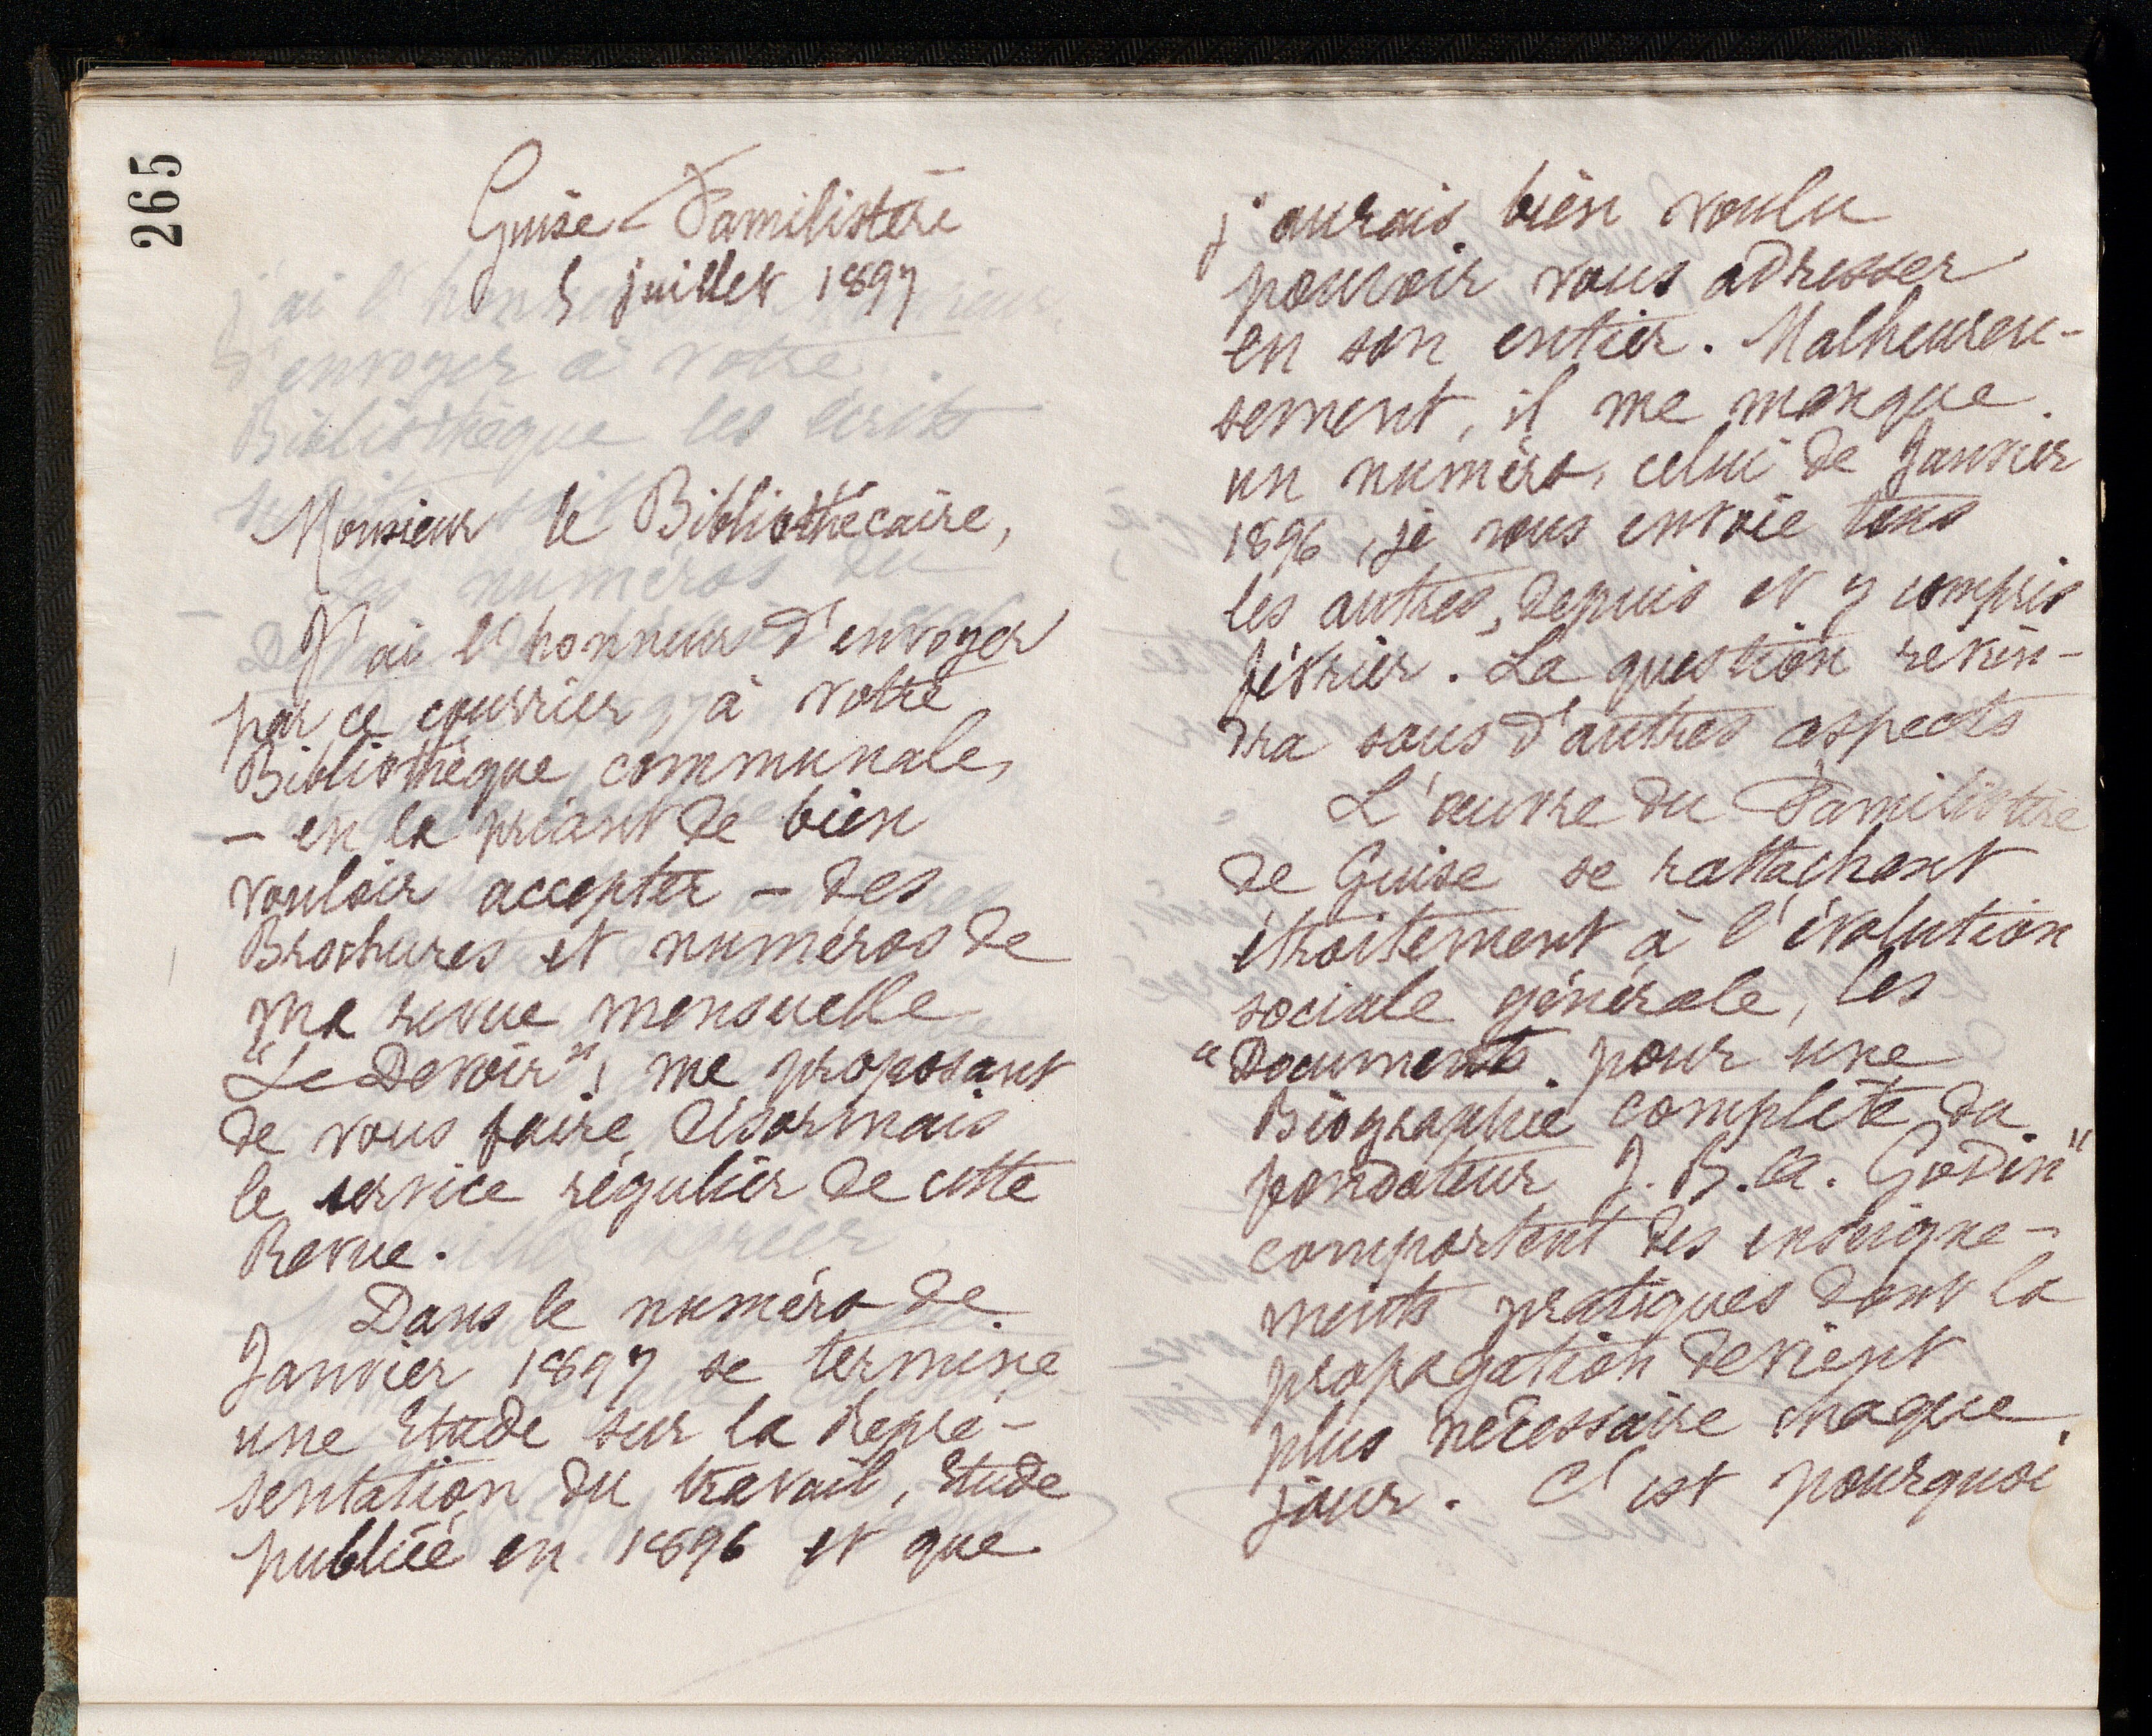 265
Guise-Familistère
5 juillet 1897
Monsieur le Bibliothécaire,
J'ai l'honneur d'envoyer
par ce courrier, à votre
Bibliothèque communale,
– en la priant de bien
vouloir accepter – des
Brochures et numéros de
ma revue mensuelle
"Le Devoir", me proposant
de vous faire désormais
le service régulier de cette
Revue.
Dans le numéro de
Janvier 1897 se termine
une Etude sur la Repré-
sentation du travail, Etude
publiée en 1896 et que
j'aurais bien voulu
pouvoir vous adresser
en son entier. Malheureu-
sement, il me manque
un numéro, celui de Janvier
1896, je vous envoie tous
les autres, depuis et y compris
février. La question revien-
dra sous d'autres aspects
L'œuvre du Familistère
de Guise se rattachant
étroitement à l'évolution
sociale générale, les
"Documents pour une
Biographie complète du
fondateur J. B. A. Godin"
comportent des enseigne-
ments pratiques dont la
propagation devient
plus nécessaire chaque
jour. C'est pourquoi